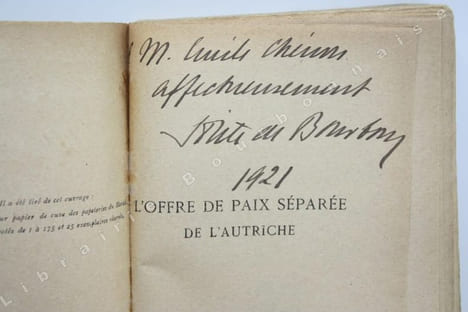 M. Emile Chénon
affectueusement
Sixte de Bourbon
1921
L'OFFRE DE PAIX SÉPARÉE
DE L'AUTRICHE
Il a été tiré de cet ouvrage :
sur papier de cuve des papeteries du
de 1 à 175 et 25 exemplaires
Librairie Bourbonnaise